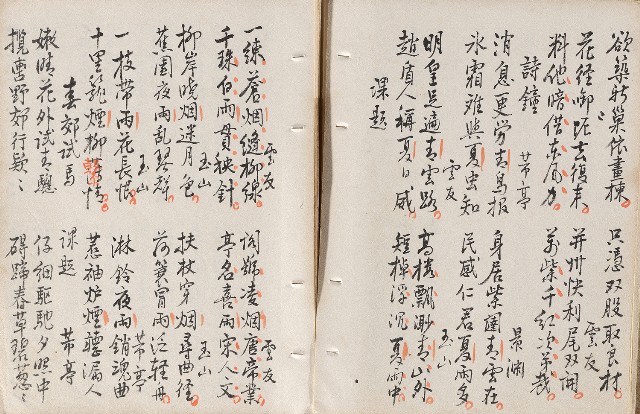 欲築新巢依畫棟 只憑双股取良材
雲友
花經啣泥去復來 并州快利尾双開
料他暗借東風力 萬紫千紅次第裁
詩鐘
苐亭 景渊
消息更勞青鳥報 身居紫闥青雲在
冰霜難與夏虫知 民感仁君夏雨多
雲友 玉山
明皇足遍青雲路 高樓飄渺青山外
趙盾人稱夏日威 短棹浮沉夏雨中
課題
雲友 雲友
一練蒼烟縫柳線 閣號凌烟唐帝業
千珠白雨貫秧針 亭名喜雨宋人文
玉山 玉山
柳岸曉烟迷月色 扶杖穿烟尋曲径
蕉園夜雨亂琴聲 荷蓑冒雨泛轻舟
玉山 苐亭
一枝帶雨花長恨 淋鈴夜雨銷魂曲
十里籠煙柳情 惹袖炉煙聽漏人
春郊試馬 課題 苐亭
嫩晴花外試青驄 仔細驅馳夕照中
攬轡野郊行欵ゝ 碍蹄春草碧葱ゝ